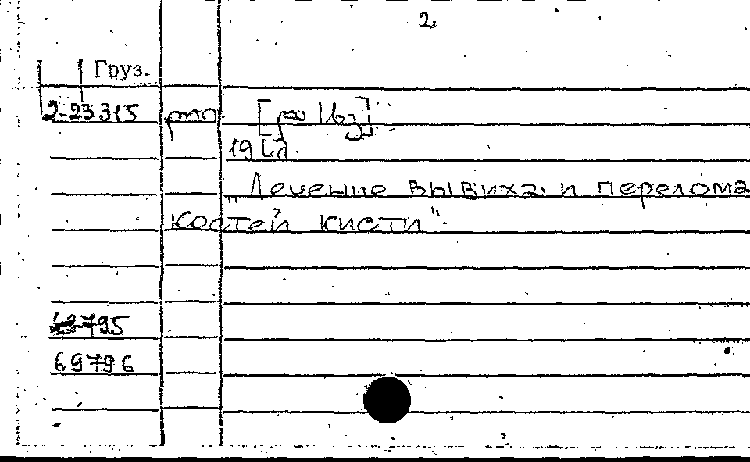 2.
Груз.
2-23315
19
"Лечение вывиха и перелома
костей кисти".
69795
69796